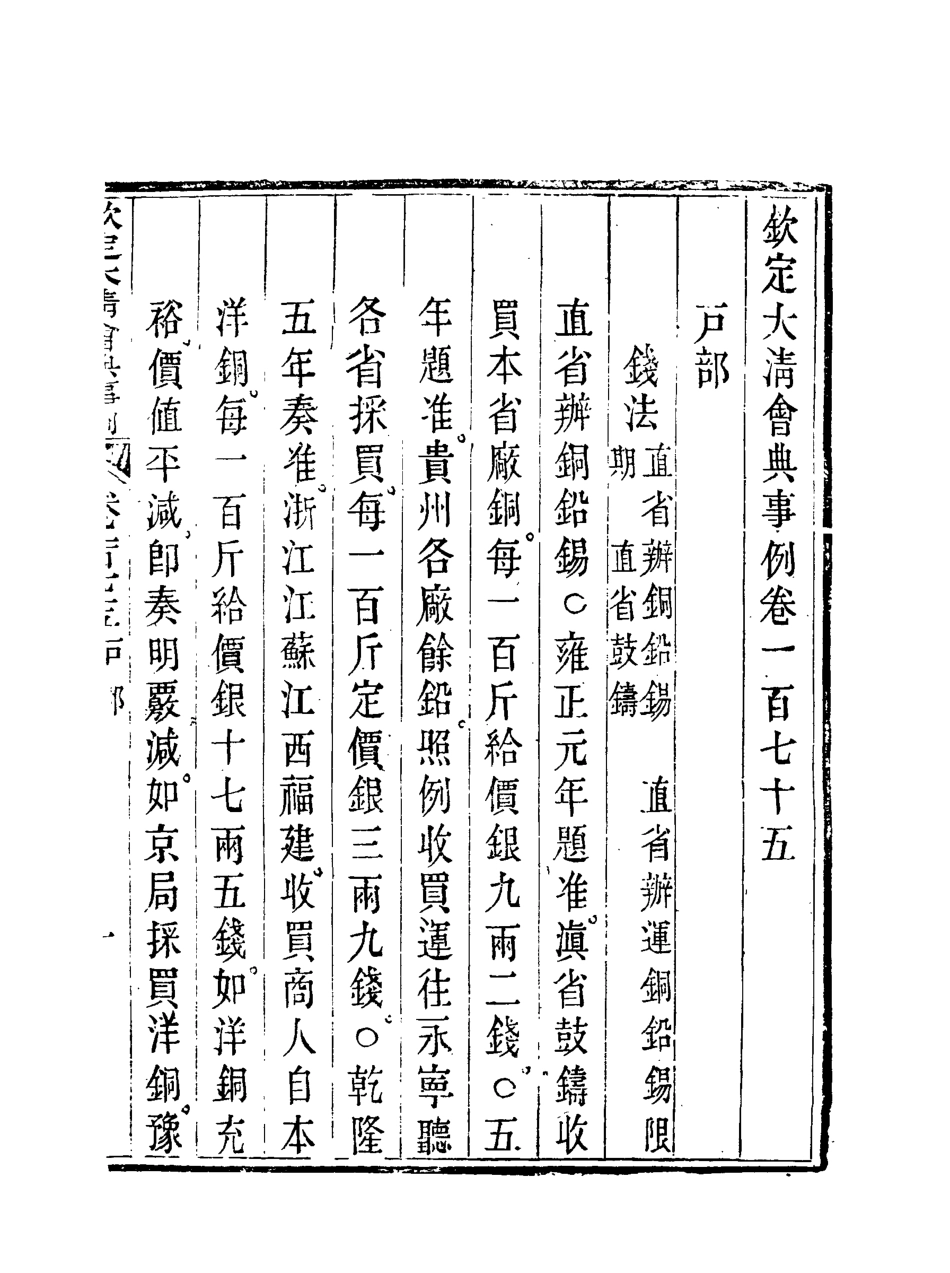 欽定大淸會典事例卷一百七十五
戸部
錢法
直省辦銅鉛錫　直省辦運銅鉛錫限
期　直省鼓鑄
直省辦銅鉛錫○雍正元年題准。滇省鼓鑄收
買本省廠銅。每一百斤給價銀九兩二錢。○五
年題准。貴州各廠餘鉛。照例收買運往永寧聽
各省採買。每一百斤定價銀三兩九錢。○乾隆
五年奏准。浙江江蘇江西福建。收買商人自本
洋銅。每一百斤給價銀十七兩五錢。如洋銅充
裕。價値平減。卽奏明覈減。如京局採買洋銅。豫
欽定大淸會典事例 卷一百七十五 戸部 一